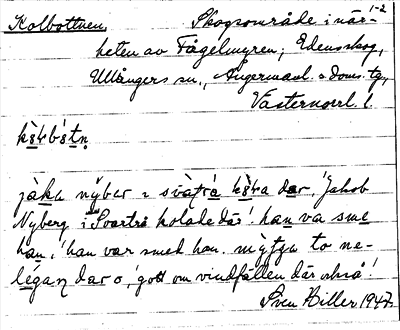 Kolbottnen, Skogsområde i när- 1-2
heten av Fågelmyren, Edensskog,
Ullångers sn., Ångermanl. s. doms. tg,
Västernorrl. l.
jåka nýber svàtrå kɷ̀ra dar, 'Jakob
Nyberg i Svartrå kolade där'. han va sme
han, 'han var smed han. mýtju to ne-
légan dar o', 'gott om vindfällen där också'!
Sven Hiller 1947.